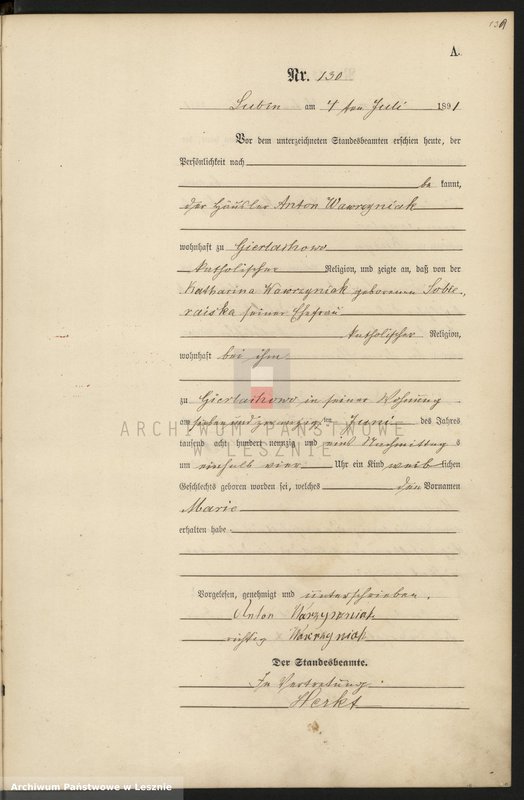 139
A.
Nr. 130
Lubin am 1 ten Juli 1891
Vor dem unterzeichneten Standesbeamten erschien heute, der
Persönlichkeit nach
be kannt,
der Häusler Anton Wawrzyniak
wohnhaft zu Gierlachowo
katholischer Religion, und zeigte an, daß von der
Katharina Wawrzyniak geborenen Sobie-
raiska seiner Ehefrau
katholischer Religion,
wohnhaft bei ihm
zu Gierlachowo in seiner Wohnung
am sieben und zwanzig ten Juni des Jahres
tausend acht hundert neunzig und eins Nachmittag s
um einhalb vier Uhr ein Kind weib lichen
Geschlechts geboren worden sei, welches den Vornamen
Marie
erhalten habe.
Vorgelesen, genehmigt und unterschrieben.
Anton
richtig Wawrzyniak
Der Standesbeamte.
In Vertretung
Herkt
ARCHIWUM PAŃSTWOWE
W LESZNIE
Archiwum Państwowe w Lesznie